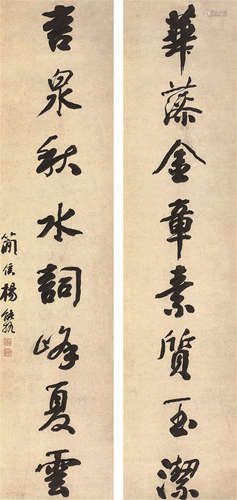 華藻金章素質玉潔
言泉秋水詞峰夏雲
簡侯楊能格